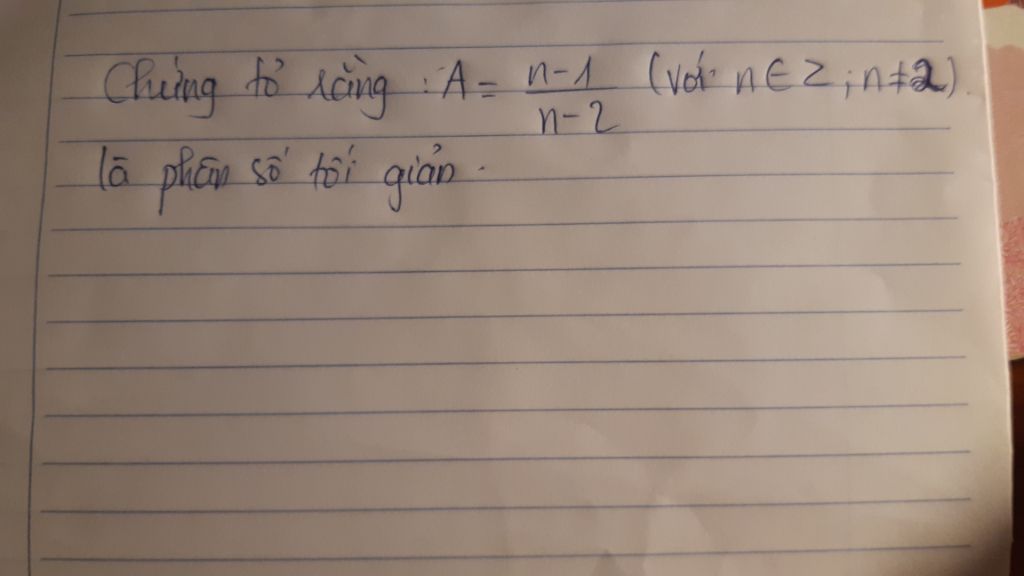 Chứng tỏ rằng : A = \frac{n-1}{n-2} (với n ∈ Z ; n ≠ 2).
là phân số tối giản.